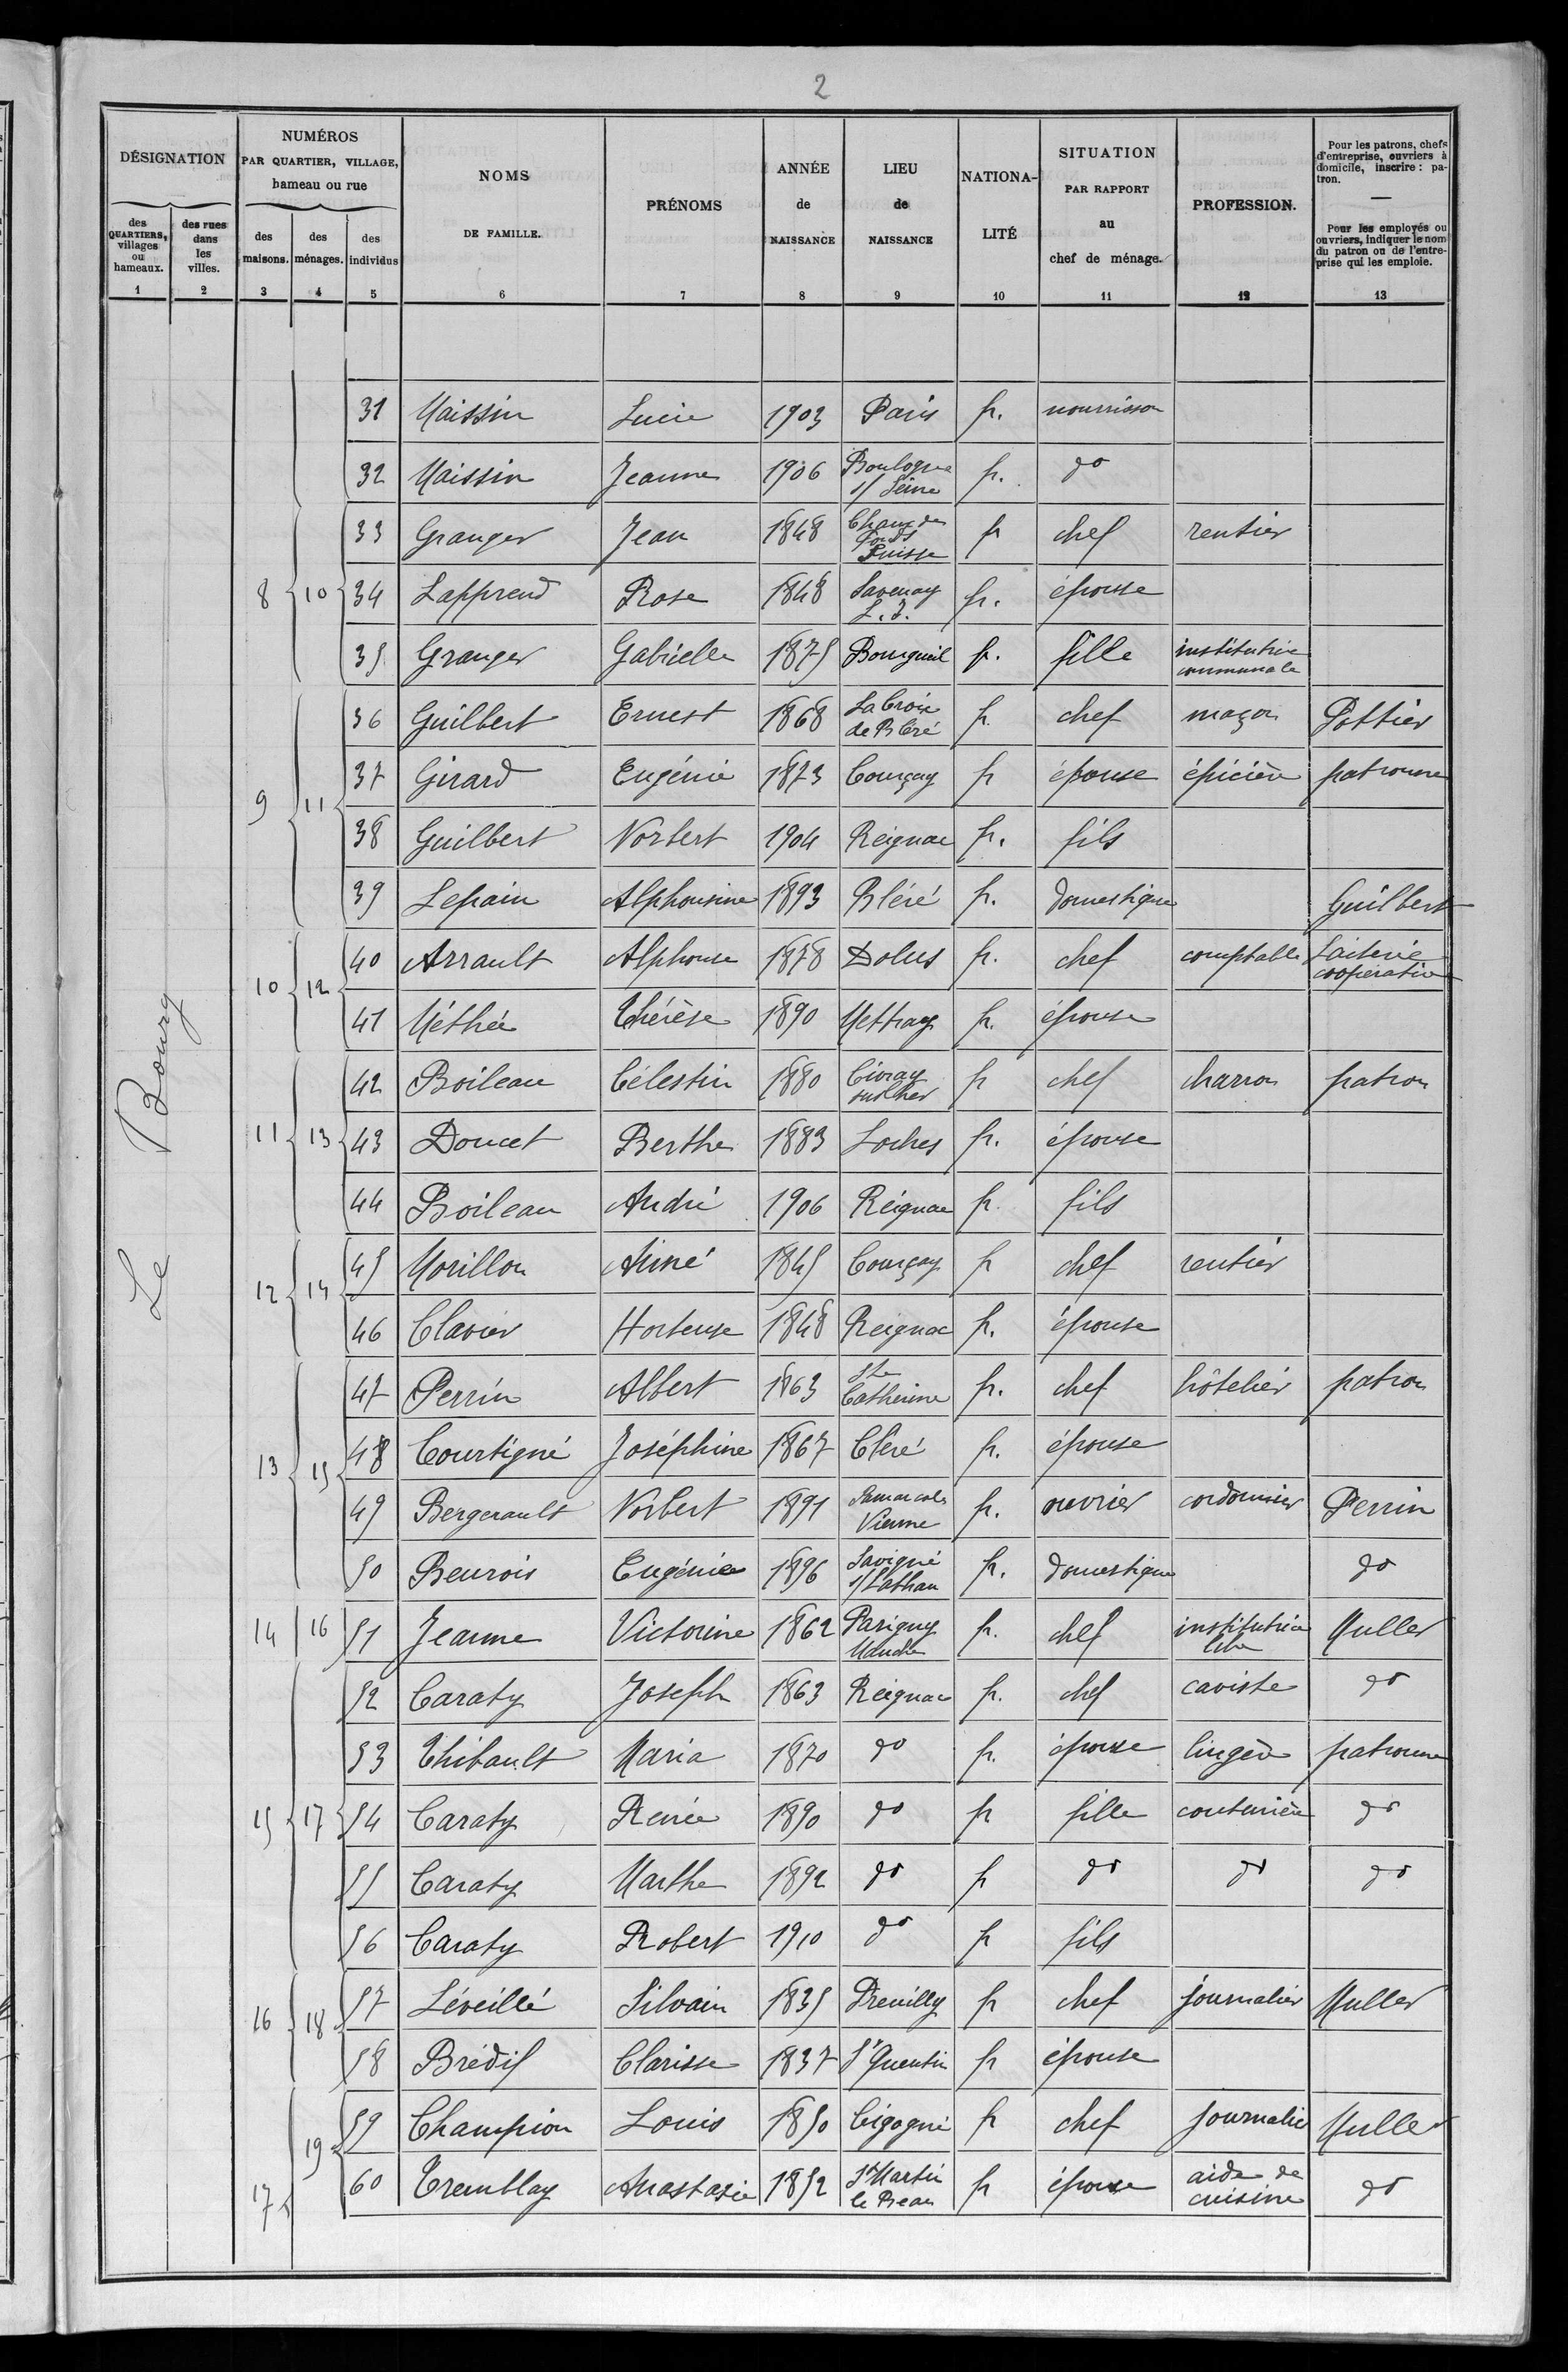 2
DÉSIGNATION
des QUARTIERS, villages ou hameaux.
des rues dans les villes.
NUMÉROS
PAR QUARTIER, VILLAGE,
hameau ou rue
des maisons.
des ménages.
des individus
NOMS
DE FAMILLE.
PRÉNOMS
ANNÉE
de
NAISSANCE
LIEU
de
NAISSANCE
NATIONA-
LITÉ
SITUATION
PAR RAPPORT
au
chef de ménage.
PROFESSION.
Pour les patrons, chefs
d'entreprise, ouvriers à
domicile, inscrire : pa-
tron.
—
Pour les employés ou
ouvriers, indiquer le nom
du patron ou de l'entre-
prise qui les emploie.
1 2 3 4 5 6 7 8 9 10 11 12 13
Le Bourg
31 Maissin Lucie 1903 Paris fr. nourrisson
32 Maissin Jeanne 1906 Boulogne s/ Seine fr. do
33 Granger Jean 1848 Chaux de Fonds Suisse fr chef rentier
8 10 34 Lapprend Rose 1848 Savenay L. I. fr. épouse
35 Granger Gabrielle 1875 Bourgueil fr. fille institutrice communale
36 Guilbert Ernest 1868 La Croix de Bléré fr. chef maçon Pottier
9 11 37 Girard Eugénie 1873 Courçay fr épouse épicière patronne
38 Guilbert Norbert 1904 Reignac fr. fils
39 Lepain Alphonsine 1893 Bléré fr. domestique Guilbert
10 12 40 Arrault Alphonse 1878 Dolus fr. chef comptable Laiterie coopérative
41 Méthée Thérèse 1890 Mettray fr. épouse
42 Boileau Célestin 1880 Civray sur Cher fr chef charron patron
11 13 43 Doucet Berthe 1883 Loches fr. épouse
44 Boileau André 1906 Reignac fr. fils
12 14 45 Morillon Aimé 1845 Courçay fr chef rentier
46 Clavier Hortense 1848 Reignac fr. épouse
47 Perrin Albert 1863 Ste Catherine fr. chef hôtelier patron
13 15 48 Courtigné Joséphine 1867 Cléré fr. épouse
49 Bergerault Norbert 1891 Samarcoles Vienne fr. ouvrier cordonnier Perrin
50 Beurois Eugénie 1896 Savigné s/ Lathan fr. domestique do
14 16 51 Jeanne Victorine 1862 Parigny Manche fr. chef institutrice libre Muller
52 Caraty Joseph 1863 Reignac fr. chef caviste do
53 Thibault Maria 1870 do fr. épouse lingère patronne
15 17 54 Caraty Renée 1890 do fr fille couturière do
55 Caraty Marthe 1892 do fr do do do
56 Caraty Robert 1910 do fr fils
16 18 57 Léveillé Silvain 1835 Preuilly fr chef journalier Muller
58 Brédif Clarisse 1837 St Quentin fr épouse
19 59 Champion Louis 1850 Cigogné fr chef journalier Muller
17 60 Tremblay Anastasie 1852 St Martin le Beau fr épouse aide de cuisine do